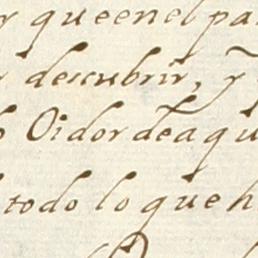 y que en el pa
descubrir, y
Oidor de aqu
todo lo que h